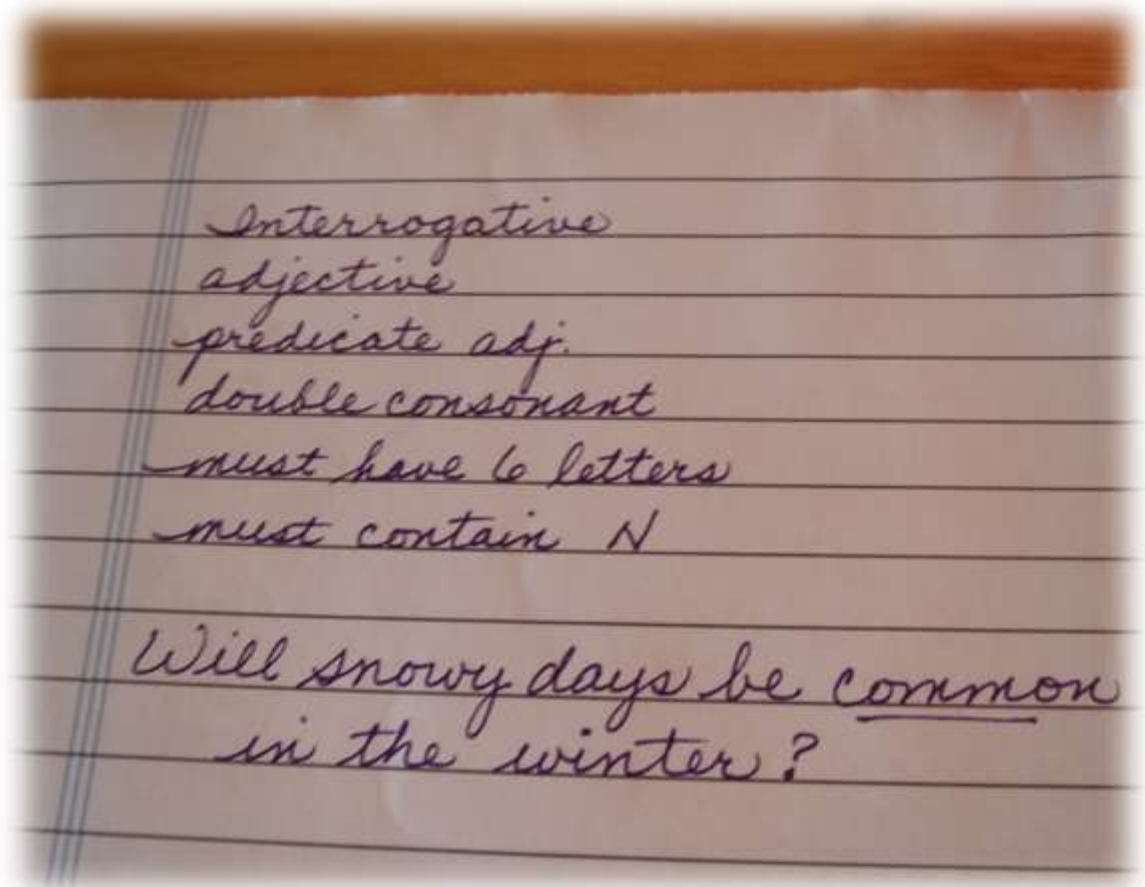 Interrogative
adjective
predicate adj.
double consonant
must have 6 letters
must contain N
Will snowy days be common
in the winter?